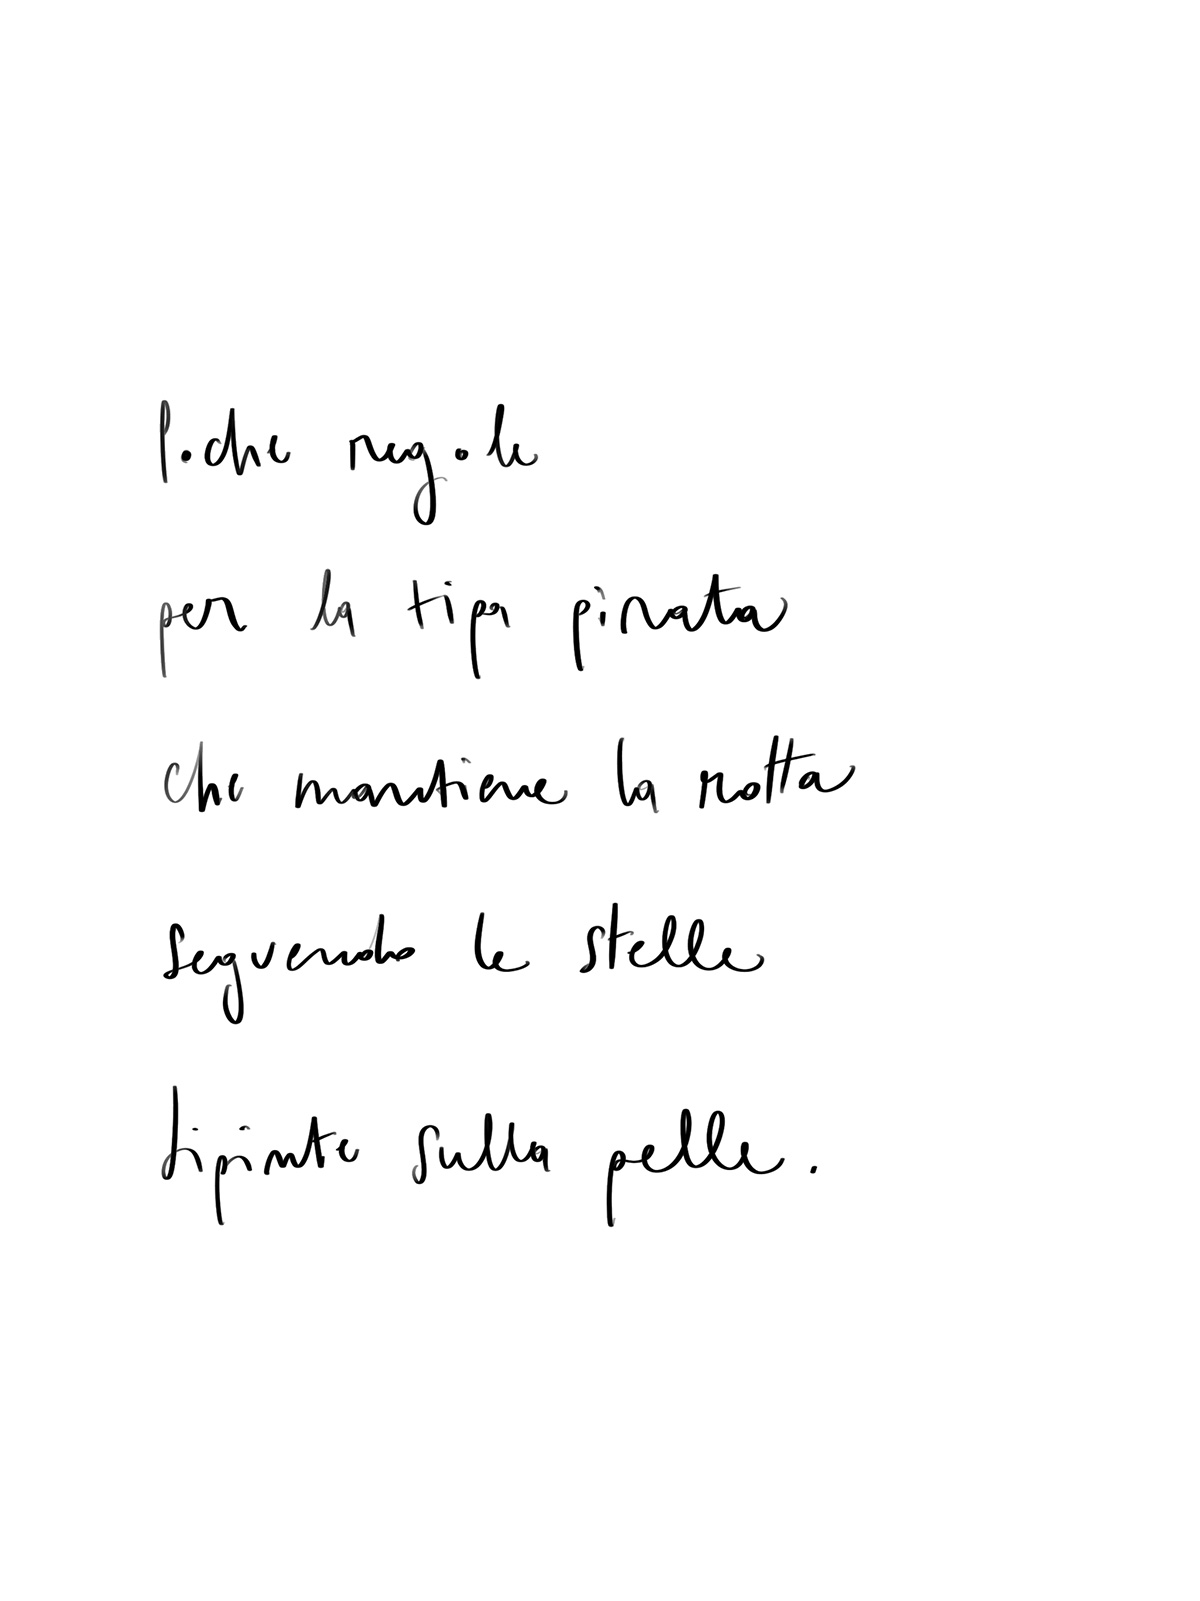 Poche regole
per la tipa pirata
che mantiene la rotta
seguendo le stelle
dipinte sulla pelle.